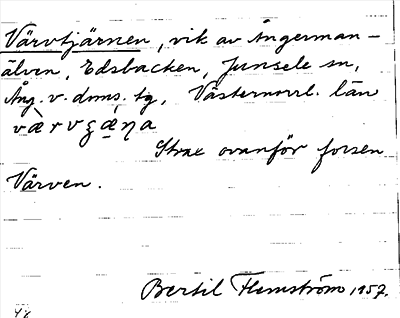 Värvtjärnen, vik av Ångerman-
älven, Edsbacken, Junsele sn,
Ång. v. doms. tg, Västernorrl. län
Strax ovanför forsen
Värven.
Bertil Flemström 1957.